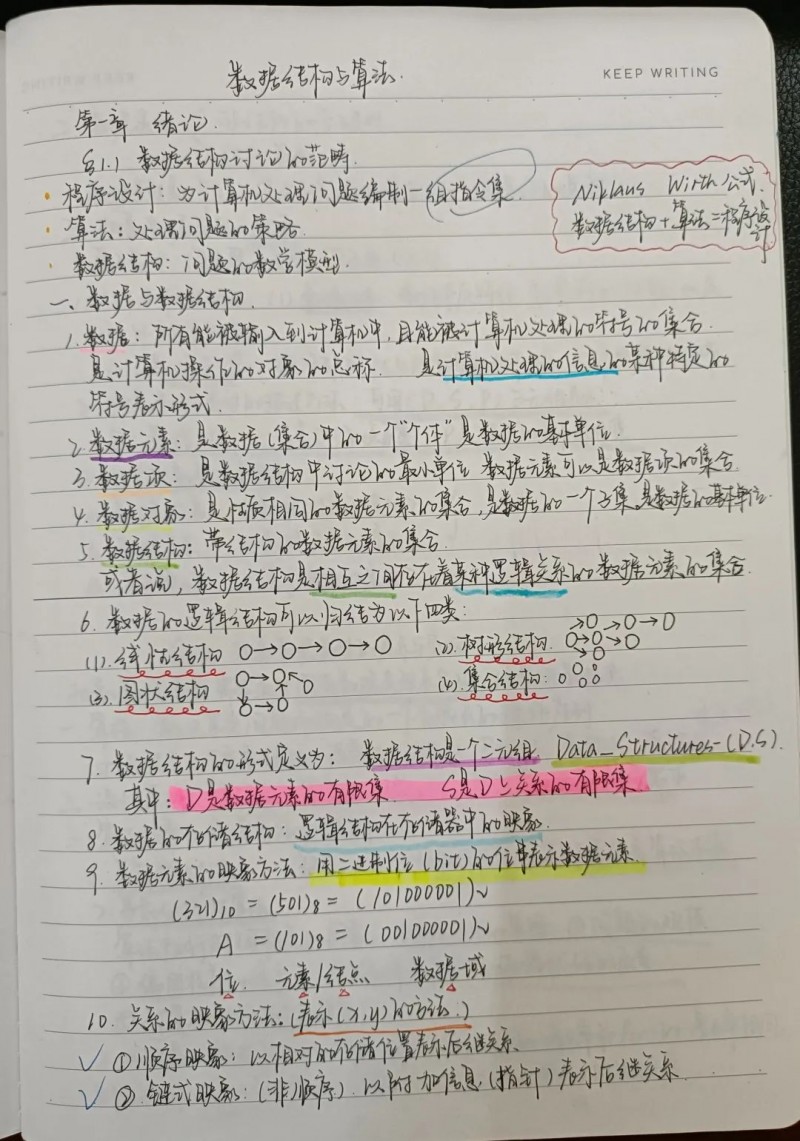 KEEP WRITING
数据结构与算法.
第一章 绪论.
§1.1 数据结构讨论的范畴.
· 程序设计: 为计算机处理问题编制一组指令集.
Niklaus Wirth公式.
数据结构+算法=程序设计
· 算法: 处理问题的策略.
· 数据结构: 问题的数学模型.
一、数据与数据结构.
1. 数据: 所有能被输入到计算机中, 且能被计算机处理的符号的集合.
是计算机操作的对象的总称. 是计算机处理的信息的某种特定的
符号表示形式.
2. 数据元素: 是数据(集合)中的一个"个体" 是数据的基本单位.
3. 数据项: 是数据结构中讨论的最小单位 数据元素可以是数据项的集合.
4. 数据对象: 是性质相同的数据元素的集合, 是数据的一个子集, 是数据的基本单位.
5. 数据结构: 带结构的数据元素的集合.
或者说, 数据结构是相互之间存在着某种逻辑关系的数据元素的集合.
6. 数据的逻辑结构可以归结为以下四类:
(1). 线性结构 (2). 树形结构.
(3). 图状结构 (4). 集合结构:
7. 数据结构的形式定义为: 数据结构是一个二元组. Data_Structures-(D.S).
其中: D是数据元素的有限集. S是D上关系的有限集.
8. 数据的存储结构: 逻辑结构在存储器中的映象.
9. 数据元素的映象方法: 用二进制位(bit)的位串表示数据元素.
(321)10 = (501)8 = (101000001)2
A = (101)8 = (001000001)2
位. 元素/结点 数据域
10. 关系的映象方法: (表示(x,y)的方法.)
✓ ①顺序映象: 以相对的存储位置表示后继关系.
✓ ②. 链式映象: (非顺序). 以附加信息(指针)表示后继关系.